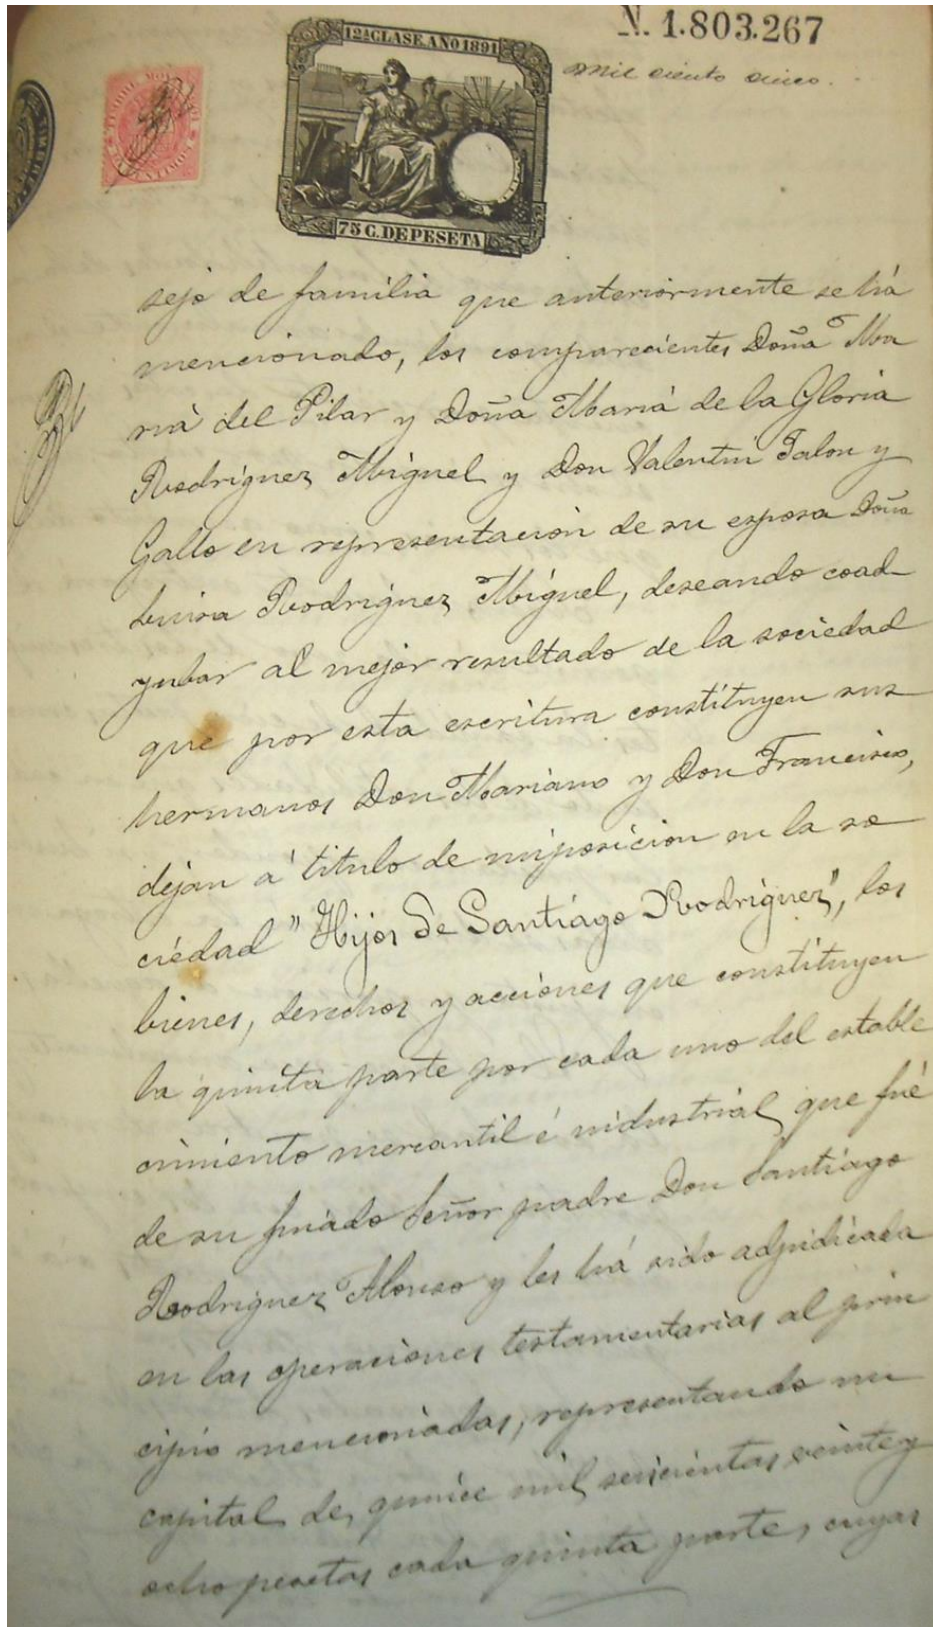 N. 1.803.267
12ª CLASE. AÑO 1891
mil ciento cinco.
75 C. DE PESETA
sejo de familia que anteriormente se há
mencionado, los comparecientes Doña Ma
ria del Pilar y Doña Maria de la Gloria
Rodriguez Miguel y Don Valentin Jalon y
Gallo en representacion de su esposa Doña
Luisa Rodriguez Miguel, deseando coad-
yubar al mejor resultado de la sociedad
que por esta escritura constituyen sus
hermanos Don Mariano y Don Francisco,
dejan á titulo de imposicion en la so
ciedad "Hijos de Santiago Rodriguez", los
bienes, derechos y acciones que constituyen
la quinta parte por cada uno del estable
cimiento mercantil é industrial que fué
de su finado Señor padre Don Santiago
Rodriguez Alonso y les há sido adjudicada
en las operaciones testamentarias al prin
cipio mencionadas, representando un
capital de quince mil seiscientas veinte y
ocho pesetas cada quinta parte, cuyas